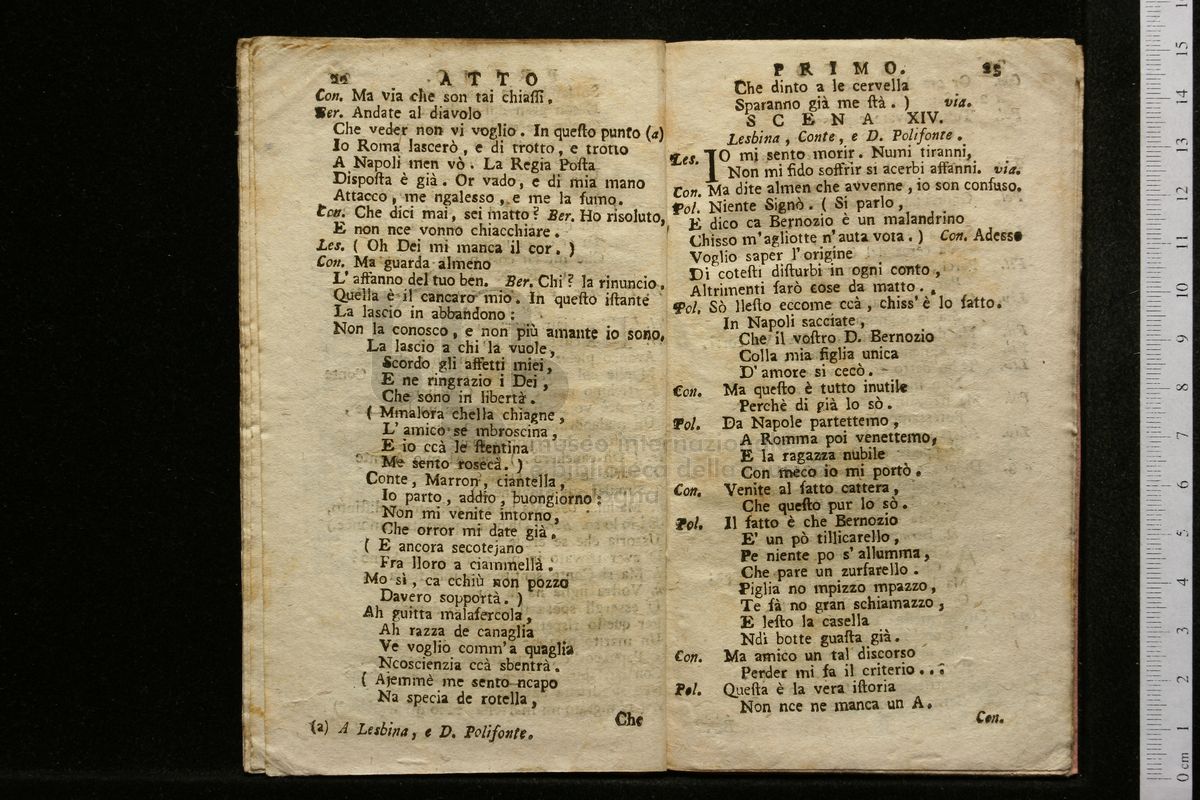 ATTO
Con. Ma via che son tai chiaſſi.
Ber. Andate al diavolo
Che veder non vi voglio. In queſto punto (a)
Io Roma laſcerò, e di trotto, e trotto
A Napoli men vò. La Regia Poſta
Diſpoſta è già. Or vado, e di mia mano
Attacco, me ngaleſſo, e me la fumo.
Con. Che dici mai, sei matto? Ber. Ho riſoluto,
E non nce vonno chiacchiare.
Les. ( Oh Dei mi manca il cor. )
Con. Ma guarda almeno
L'affanno del tuo ben. Ber. Chi? la rinuncio.
Quella è il cancaro mio. In queſto iſtante
La laſcio in abbandono:
Non la conoſco, e non più amante io ſono,
La laſcio a chi la vuole,
Scordo gli affetti miei,
E ne ringrazio i Dei,
Che ſono in libertà.
( Mmalora chella chiagne,
L'amico ſe mbroscina,
E io ccà le ſtentina
Me ſento roſecà. )
Conte, Marron, ciantella,
Io parto, addio, buongiorno:
Non mi venite intorno,
Che orror mi date già.
( E ancora ſecotejano
Fra lloro a ciammellà.
Mo sì, ca cchiù non pozzo
Davero ſopportà. )
Ah guitta malafercola,
Ah razza de canaglia
Ve voglio comm'a quaglia
Ncoscienzia ccà sbentrà.
( Ajemmè me ſento ncapo
Na ſpecia de rotella,
Che
(a) A Lesbina, e D. Polifonte.
PRIMO. 25
Che dinto a le cervella
Sparanno già me ſtà. ) via.
SCENA XIV.
Lesbina, Conte, e D. Polifonte.
Les. IO mi ſento morir. Numi tiranni,
Non mi fido ſoffrir sì acerbi affanni. via.
Con. Ma dite almen che avvenne, io son confuſo.
Pol. Niente Signò. ( Si parlo,
E dico ca Bernozio è un malandrino
Chiſſo m'agliotte n'auta vota. ) Con. Adesso
Voglio ſaper l'origine
Di coteſti diſturbi in ogni conto,
Altrimenti farò coſe da matto.
Pol. Sò lleſto eccome ccà, chiss'è lo fatto.
In Napoli ſacciate,
Che il voſtro D. Bernozio
Colla mia figlia unica
D'amore si cecò.
Con. Ma queſto è tutto inutile
Perchè di già lo sò.
Pol. Da Napole partettemo,
A Romma poi venettemo,
E la ragazza nubile
Con meco io mi portò.
Con. Venite al fatto cattera,
Che queſto pur lo sò.
Pol. Il fatto è che Bernozio
E' un pò tillicarello,
Pe niente po s'allumma,
Che pare un zurfarello.
Piglia no mpizzo mpazzo,
Te fà no gran schiamazzo,
E leſto la casella
Ndi botte guaſta già.
Con. Ma amico un tal diſcorso
Perder mi fa il criterio...
Pol. Queſta è la vera iſtoria
Non nce ne manca un A.
Con.